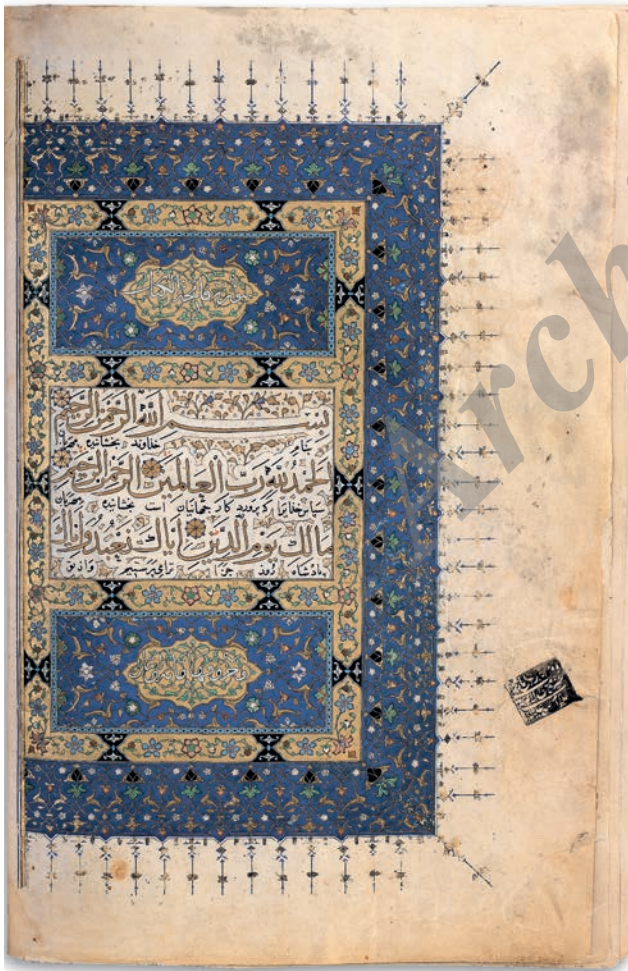 سورة فاتحة الكتاب
بسم الله الرحمن الرحيم
بنام خداوند بخشاینده مهربان
الحمد لله رب العالمين الرحمن الرحيم
سپاس خدایرا که پرورد کار جهانیان است بخشاینده مهربان
مالك يوم الدين اياك نعبد واياك
پادشاه روز جزا ترا می پرستیم و از تو
Arch